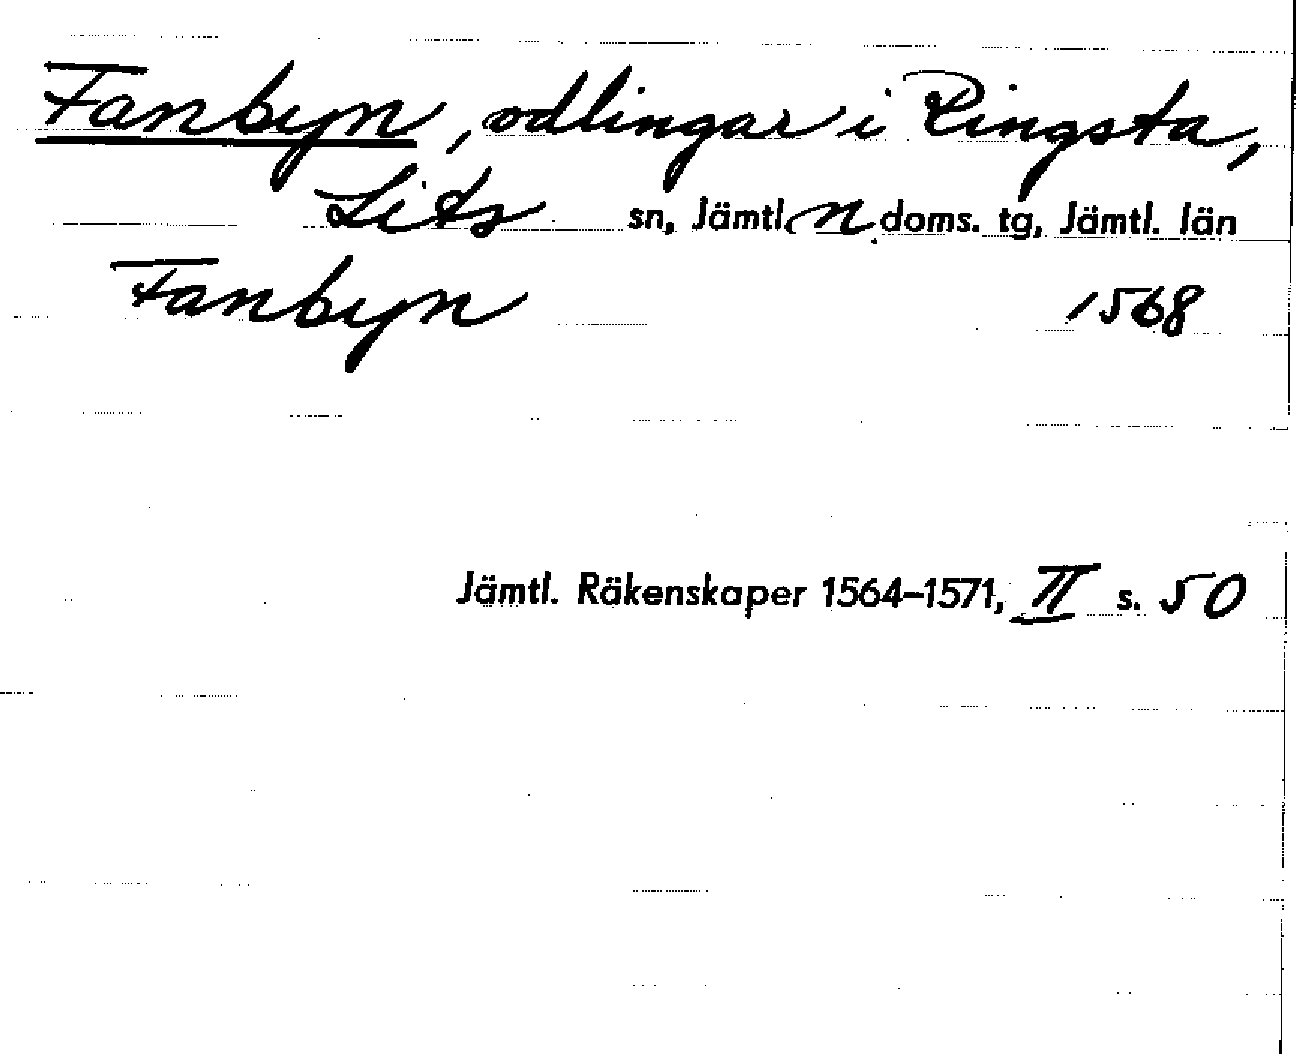 Fanbyn, odlingar i Ringsta,
Lits sn, Jämtl. n doms. tg, Jämtl. län
Fanbyn 1568
Jämtl. Räkenskaper 1564–1571, II s. 50